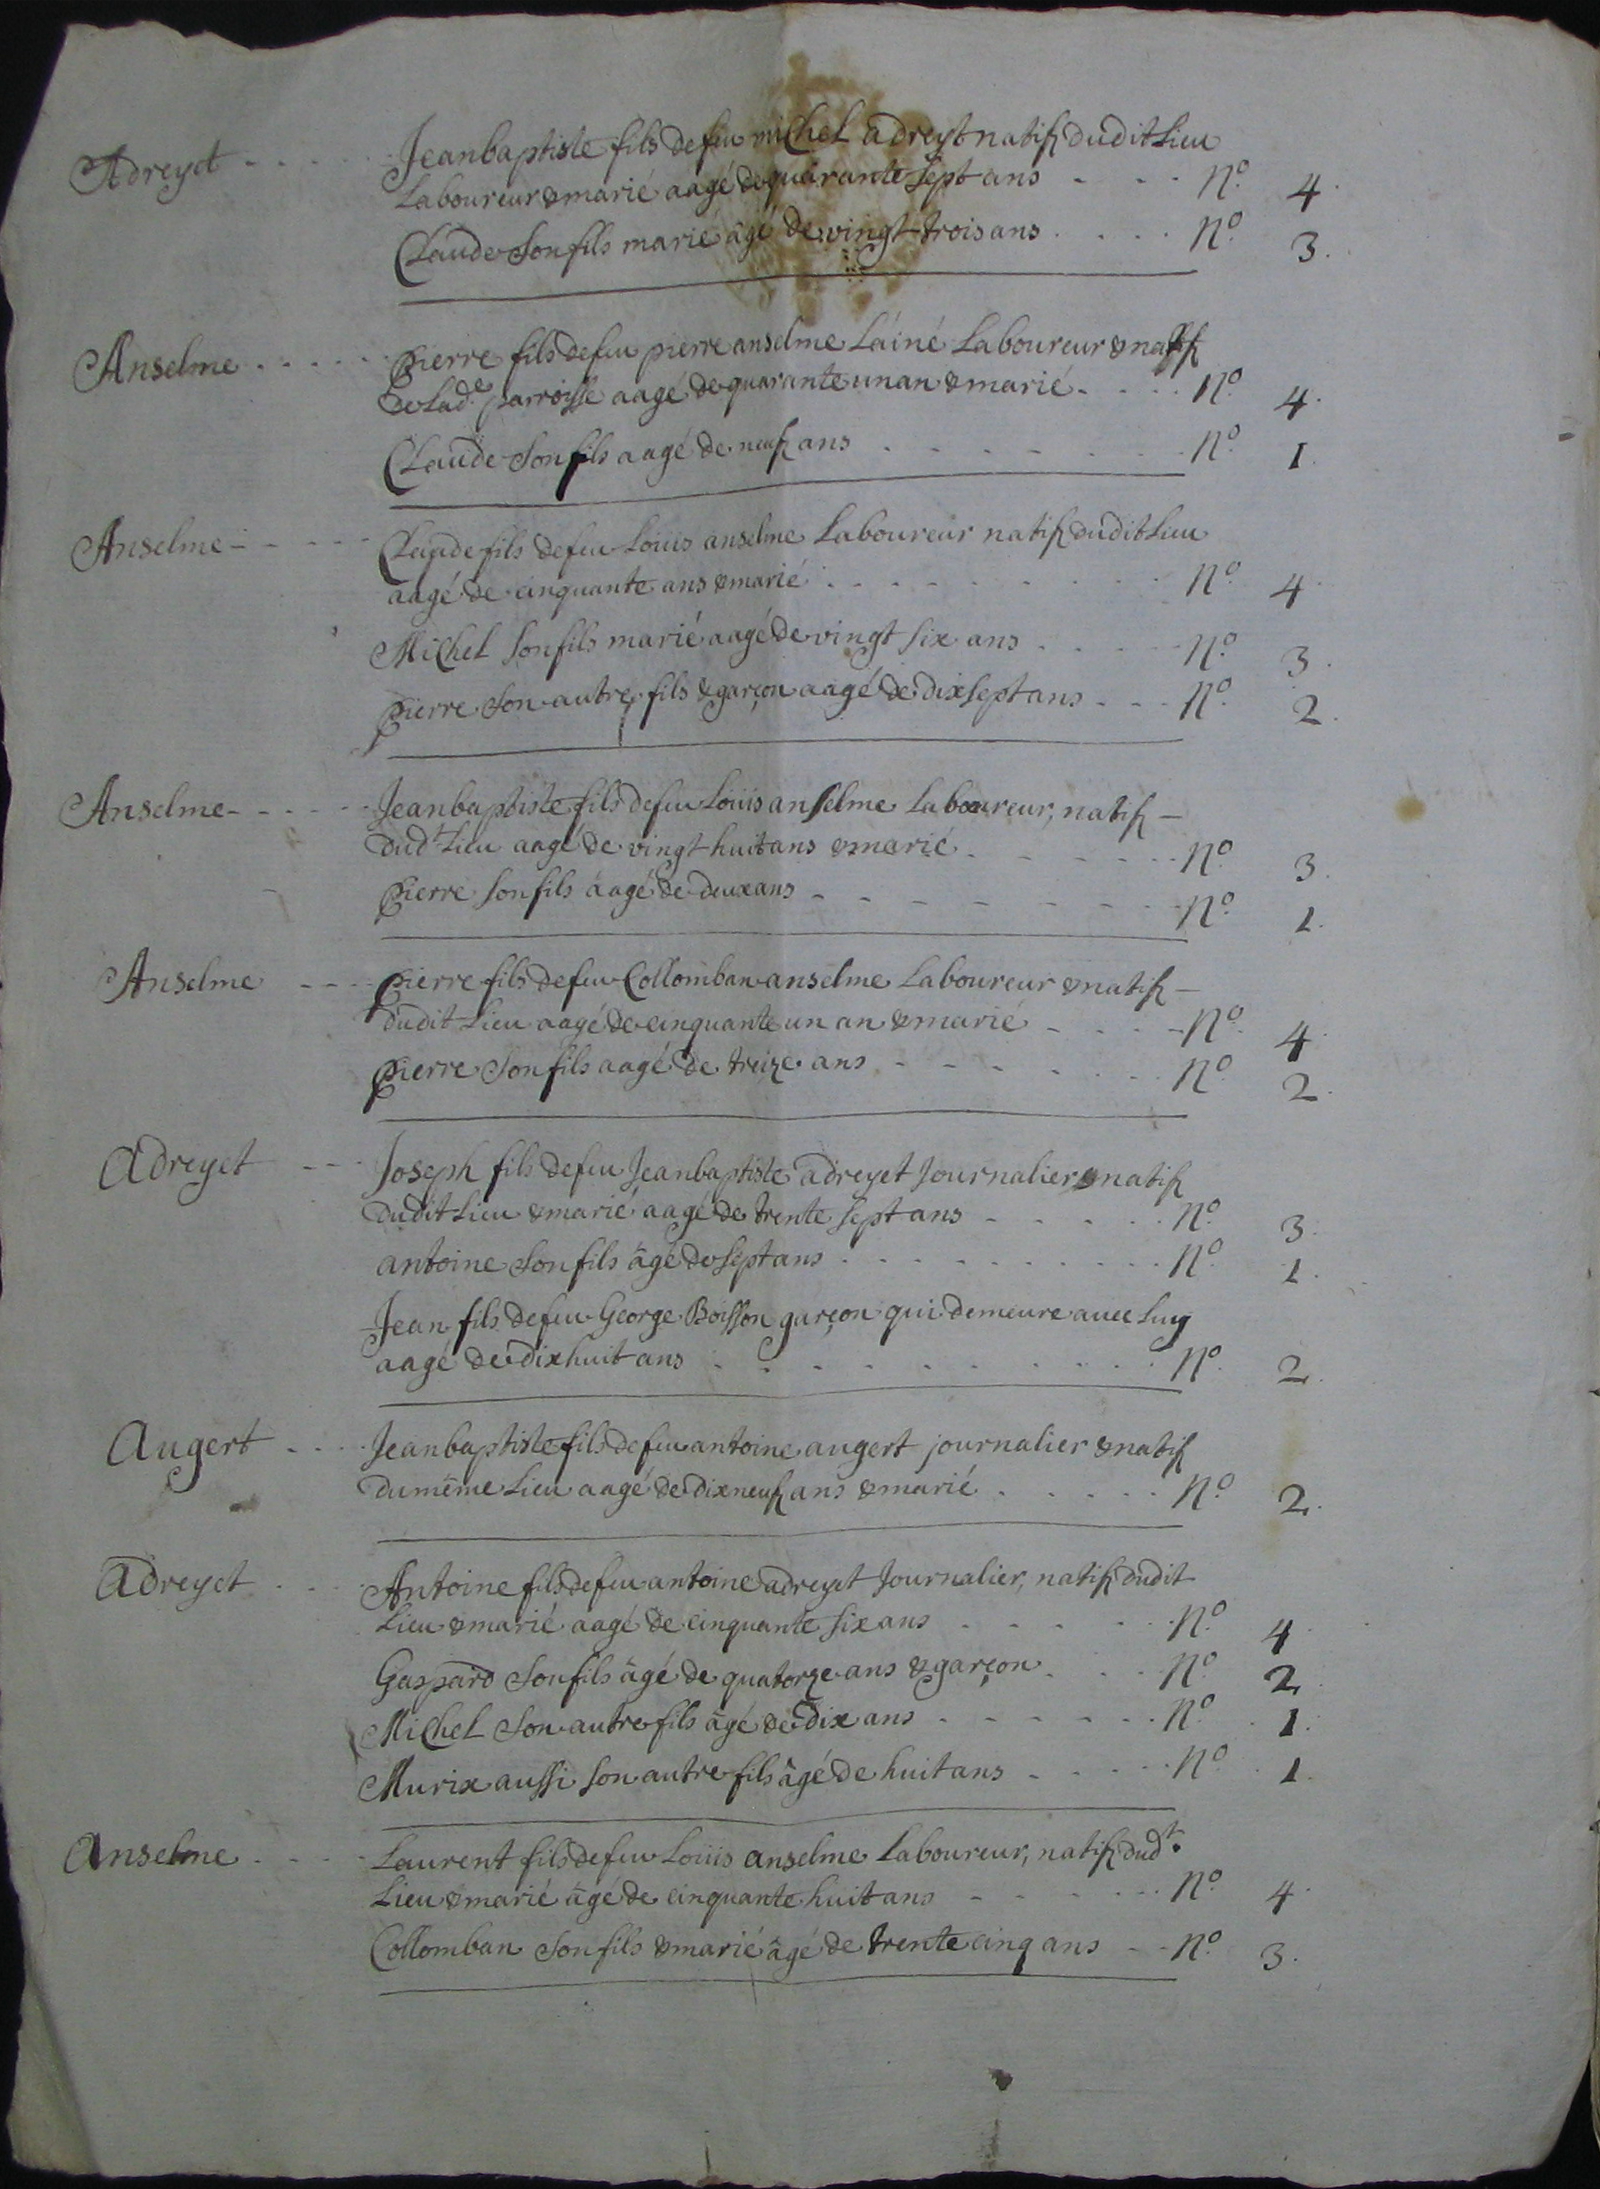 Adreyct - - - - - Jeanbaptiste fils de feu michel adreyt natif dudit Lieu
Laboureur & marié aagé de quarante sept ans - - - - N.º 4.
Claude Son fils marié âgé de vingt-trois ans . . . . N.º 3.
Anselme - - - - - pierre fils de feu pierre anselme L'áiné Laboureur & natif
de Lad.e parroisse aagé de quarante un an & marié - - - - N.º 4.
Claude Son fils aagé de neuf ans - - - - - - - N.º 1.
Anselme - - - - - Claude fils de feu Loüis anselme Laboureur natif dudit Lieu
aagé de cinquante ans & marié - - - - - - - N.º 4.
Michel Son fils marié aagé de vingt six ans - - - - N.º 3.
pierre Son autre fils & garçon aagé de dix sept ans - - - N.º 2.
Anselme - - - - - Jeanbaptiste fils de feu Loüis anselme Laboureur, natif -
dud.t Lieu aagé de vingt-huit ans & marié - - - - - N.º 3.
pierre Son fils aagé de deux ans - - - - - - - N.º 1.
Anselme - - - - pierre fils de feu Collomban anselme Laboureur & natif -
dudit Lieu aagé de cinquante un an & marié - - - - N.º 4.
pierre Son fils aagé de treize ans - - - - - - N.º 2.
Adreyct - - - Joseph fils de feu Jeanbaptiste adreyct Journalier & natif
dudit Lieu & marié aagé de trente Sept ans - - - - - N.º 3.
antoine Son fils âgé de Sept ans - - - - - - - N.º 1.
Jean fils de feu George Boisson garçon qui demeure avec Luy
aagé de dix huit ans - - - - - - - - N.º 2.
Augert - - - - Jeanbaptiste fils de feu antoine augert journalier & natif
du même Lieu aagé de dix neuf ans & marié . . . . . N.º 2.
Adreyct - - - - Antoine fils de feu antoine adreyct Journalier, natif dudit
Lieu & marié aagé de cinquante six ans - - - - - N.º 4.
Gaspard Son fils âgé de quatorze ans & garçon - - - N.º 2.
Michel Son autre fils âgé de dix ans - - - - - - N.º 1.
Murix aussi Son autre fils âgé de huit ans - - - - - N.º 1.
Anselme - - - - Laurent fils de feu Loüis anselme Laboureur, natif dud.t
Lieu & marié âgé de cinquante huit ans - - - - - - N.º 4.
Collomban Son fils & marié âgé de trente cinq ans - - N.º 3.